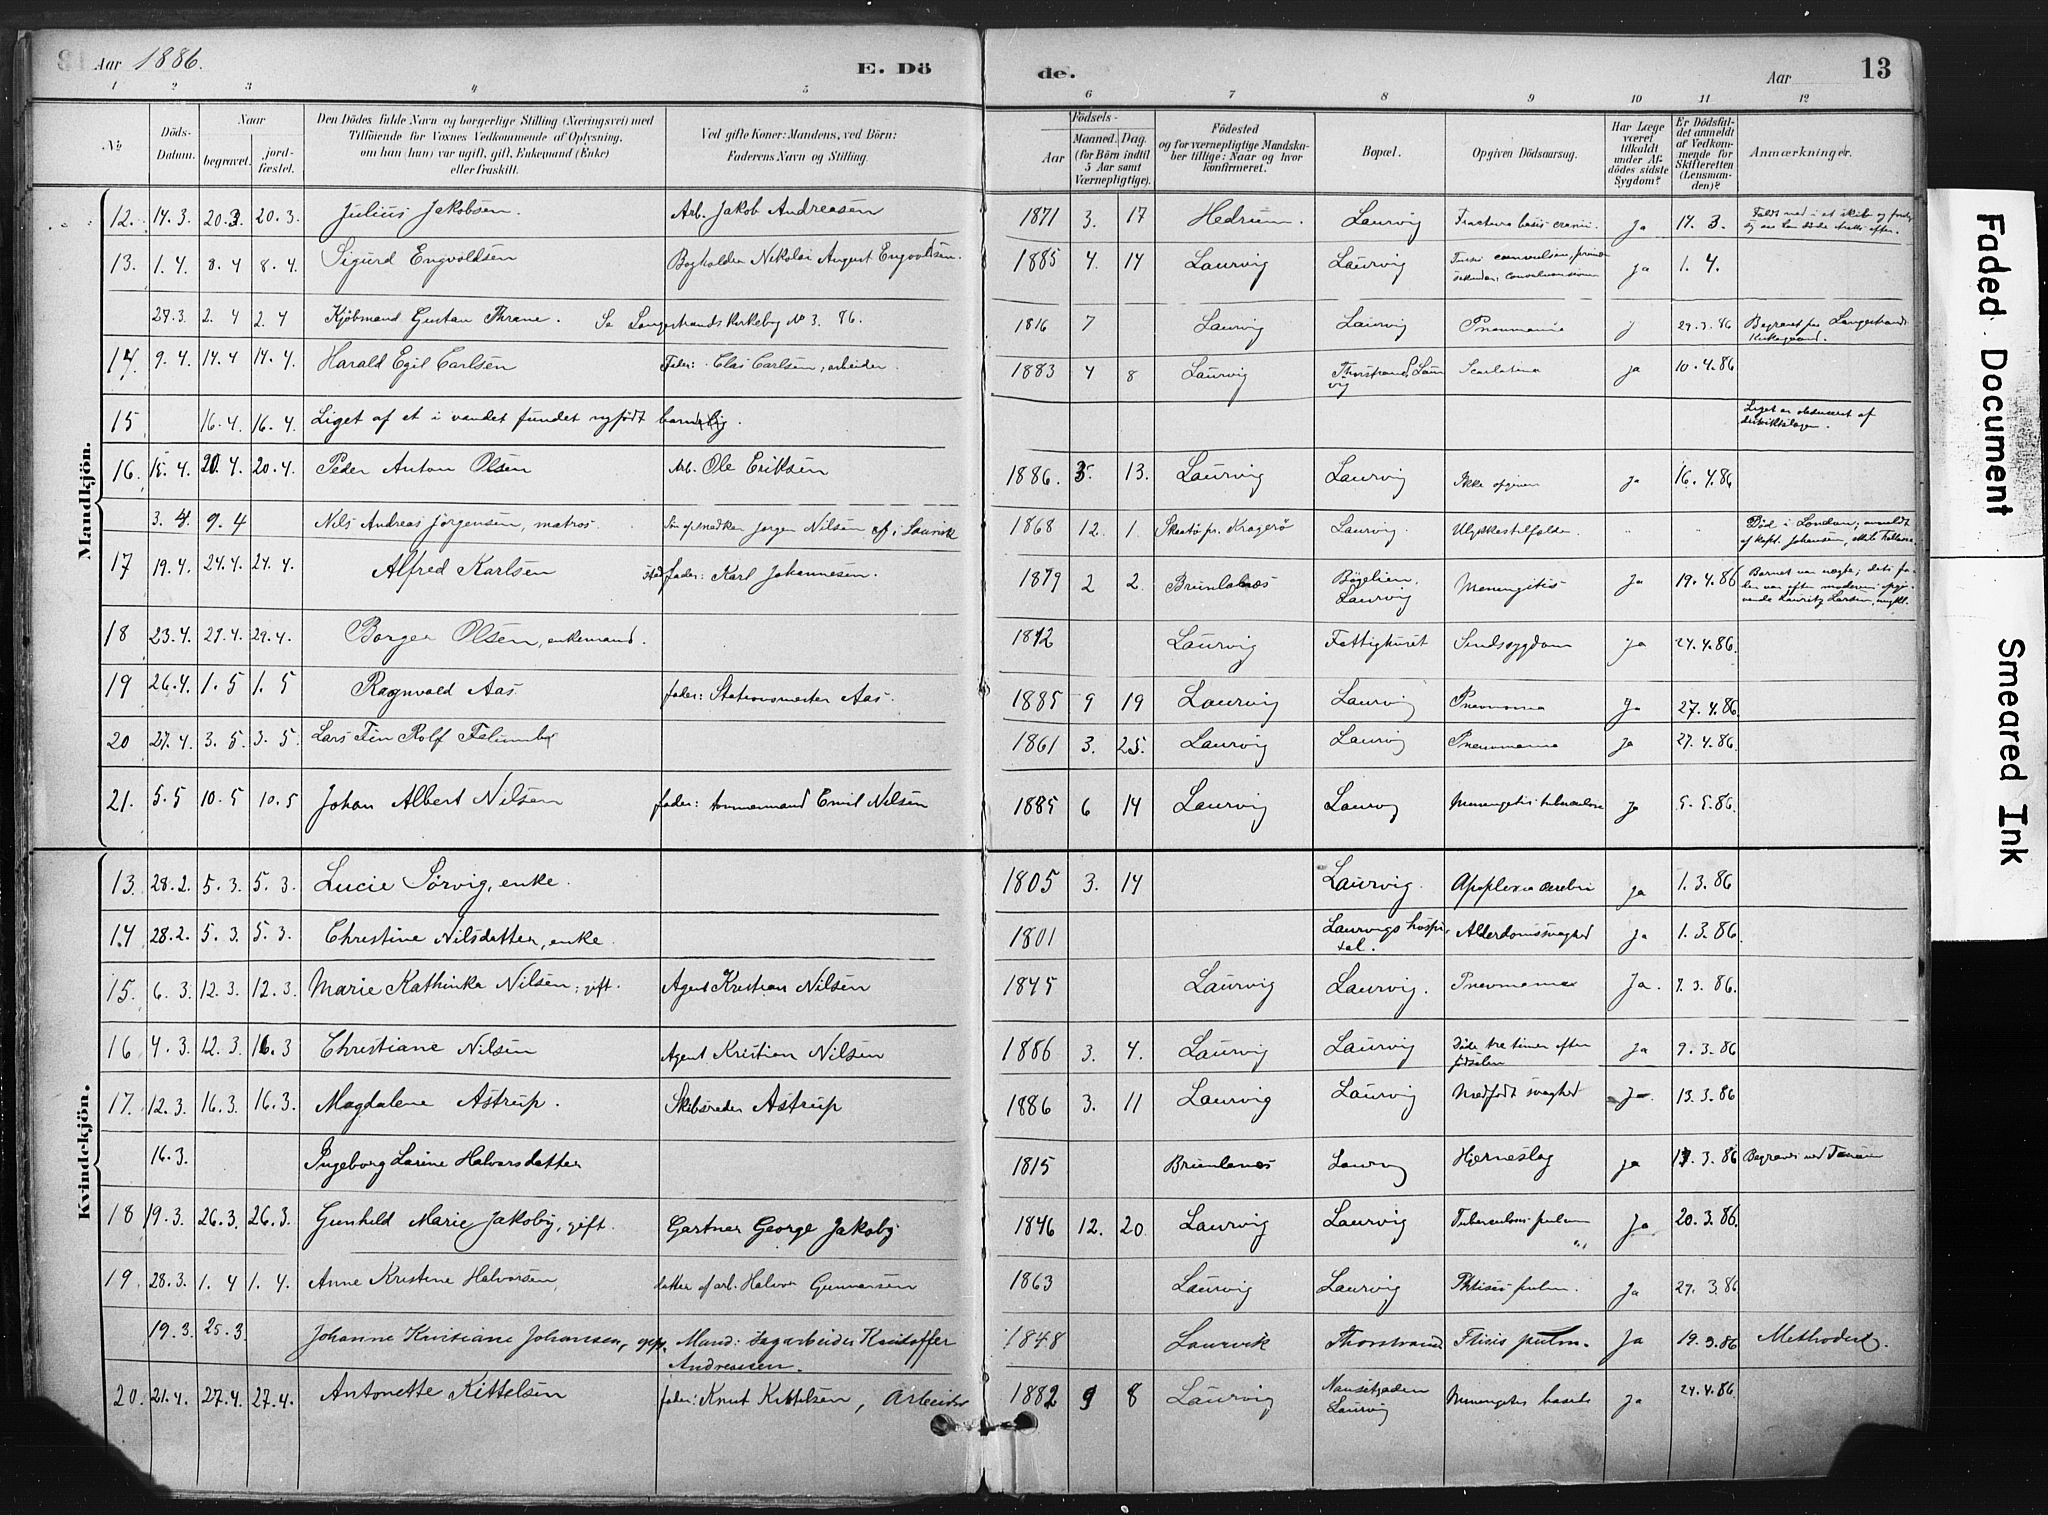 Aar 1886.
E. Dö
de.
Aar
13
1 2 3 4 5 6 7 8 9 10 11 12
№
Döds-Datum.
Naar
begravet.
jord-fæstet.
Den Dödes fulde Navn og borgerlige Stilling (Næringsvei) med
Tilföiende for Voxnes Vedkommende af Oplysning,
om han (hun) var ugift, gift, Enkemand (Enke)
eller fraskilt.
Ved gifte Koner: Mandens, ved Börn:
Faderens Navn og Stilling.
Födsels-
Aar
Maaned. Dag.
(for Börn indtil
5 Aar samt
Værnepligtige).
Födested
og for værnepligtige Mandska-
ber tillige: Naar og hvor
konfirmeret.
Bopæl.
Opgiven Dödsaarsag.
Har Læge
været
tilkaldt
under Af-
dödes sidste
Sygdom?
Er Dödsfal-
det anmeldt
af Vedkom-
mende for
Skifteretten
(Lensman-
den)?
Anmærkninger.
Mandkjön.
12. 14.3. 20.3 20.3. Julius Jakobsen. Arb. Jakob Andreasen 1871 3. 17 Hedrum. Laurvig Fractura basis cranii. Ja 17.3.
13. 1.4. 8.4 8.4. Sigurd Engvoldsen Bogholder Nikolai August Engvoldsen. 1885 4. 14 Laurvig Laurvig ja 1.4.
27.3. 2.4 2.4 Kjöbmand Gustav Thrane. Se Langestrands kirkebog № 3. 86. 1816 7 Laurvig Laurvig Pneumonie j 29.3.86 Begravet paa Langestrands Kirkegaard.
14 9.4. 14.4 14.4. Harald Egil Carlsen Fader: Clas Carlsen, arbeider. 1883 4 8 Laurvig Thorstrand, Laurvig Scarlatina ja 10.4.86
15 16.4. 16.4. Liget af et i vandet fundet nyfödt barn Liget er obduceret af distriktslægen.
16. 15.4. 20.4. 20.4. Peder Anton Olsen Arb. Ole Eriksen 1886. 3. 13. Laurvig Laurvig Ikke opgiven ja 16.4.86
3.4. 9.4 Nils Andreas Jörgensen, matros. Jorgen Nilsen af i Laurvik 1868 12. 1. Skaatö pr. Kragerö Laurvig. Ulykkestilfælde. Död i London; anmeldt af kapt. Johansen,
17 19.4. 24.4. 24.4. Alfred Karlsen fader: Karl Johannesen. 1879 2 2. Brunlanæs Bögelien, Laurvig Meningitis Ja 19.4.86 Barnet var uægte;
18 23.4. 29.4. 29.4. Borger Olsen, enkemand. 1812 Laurvig Fattighuset Sindssygdom ja 24.4.86.
19 26.4. 1.5 1.5 Ragnvald Aas fader: Stationsmester Aas. 1885 9 19 Laurvig Laurvig Pneumonia Ja 27.4.86.
20 27.4. 3.5. 3.5. Lars Fin Rolf 1861 3. 25. Laurvig Laurvig Pneumonia ja 27.4.86.
21. 5.5 10.5 10.5 Johan Albert Nilsen fader: tømmermand Emil Nilsen 1885 6 14 Laurvig Laurvig Meningitis tuberculosa Ja 5.5.86.
Kvindekjön.
13. 28.2. 5.3. 5.3. Lucie Sørvig, enke. 1805 3. 14 Laurvig. Apoplexia cerebri ja 1.3.86
14 28.2. 5.3. 5.3. Christine Nilsdatter, enke. 1801 Laurvigs hospital. Alderdomssvaghed ja 1.3.86.
15. 6.3. 12.3. 12.3. Marie Kathinka Nilsen; gift. Agent Kristian Nilsen 1845 Laurvig Laurvig. Ja. 7.3.86.
16 4.3. 12.3. 16.3 Christiane Nilsen Agent Kristian Nilsen 1886 3. 4. Laurvig Laurvig Döde tre timer efter födselen ja 9.3.86
17. 12.3. 16.3. 16.3. Magdalene Astrup. Skibsreder Astrup 1886 3. 11 Laurvig Laurvig Medfödt svaghed Ja. 13.3.86
16.3. Ingeborg Larine Halvorsdatter 1815 Brunlanes Laurvig Hjerneslag ja 17.3.86 Begravet ved Tanum
18 19.3. 26.3. 26.3. Gunhild Marie Jakoby, gift. Gartner George Jakoby 1846 12. 20 Laurvig Laurvig Tuberculosis pulm. Ja 20.3.86.
19. 28.3. 1.4 1.4. Anne Kristine Halvorsen datter af arb. Halvor Gunnarsen 1863 Laurvig Laurvig Phtisis pulm. Ja 29.3.86
19.3. 25.3 Johanne Kristiane Johansen, gift. Mand: Sagarbeider Kristoffer Andreasen. 1848 Laurvik Thorstrand Ftisis pulm. Ja 19.3.86 Methodist.
20. 21.4. 27.4. 27.4. Antonette Kittelsen fader: Knut Kittelsen, Arbeider 1882 9 8 Laurvig Nansetgaden Laurvig Meningitis basis ja 24.4.86
Faded Document
Smeared Ink